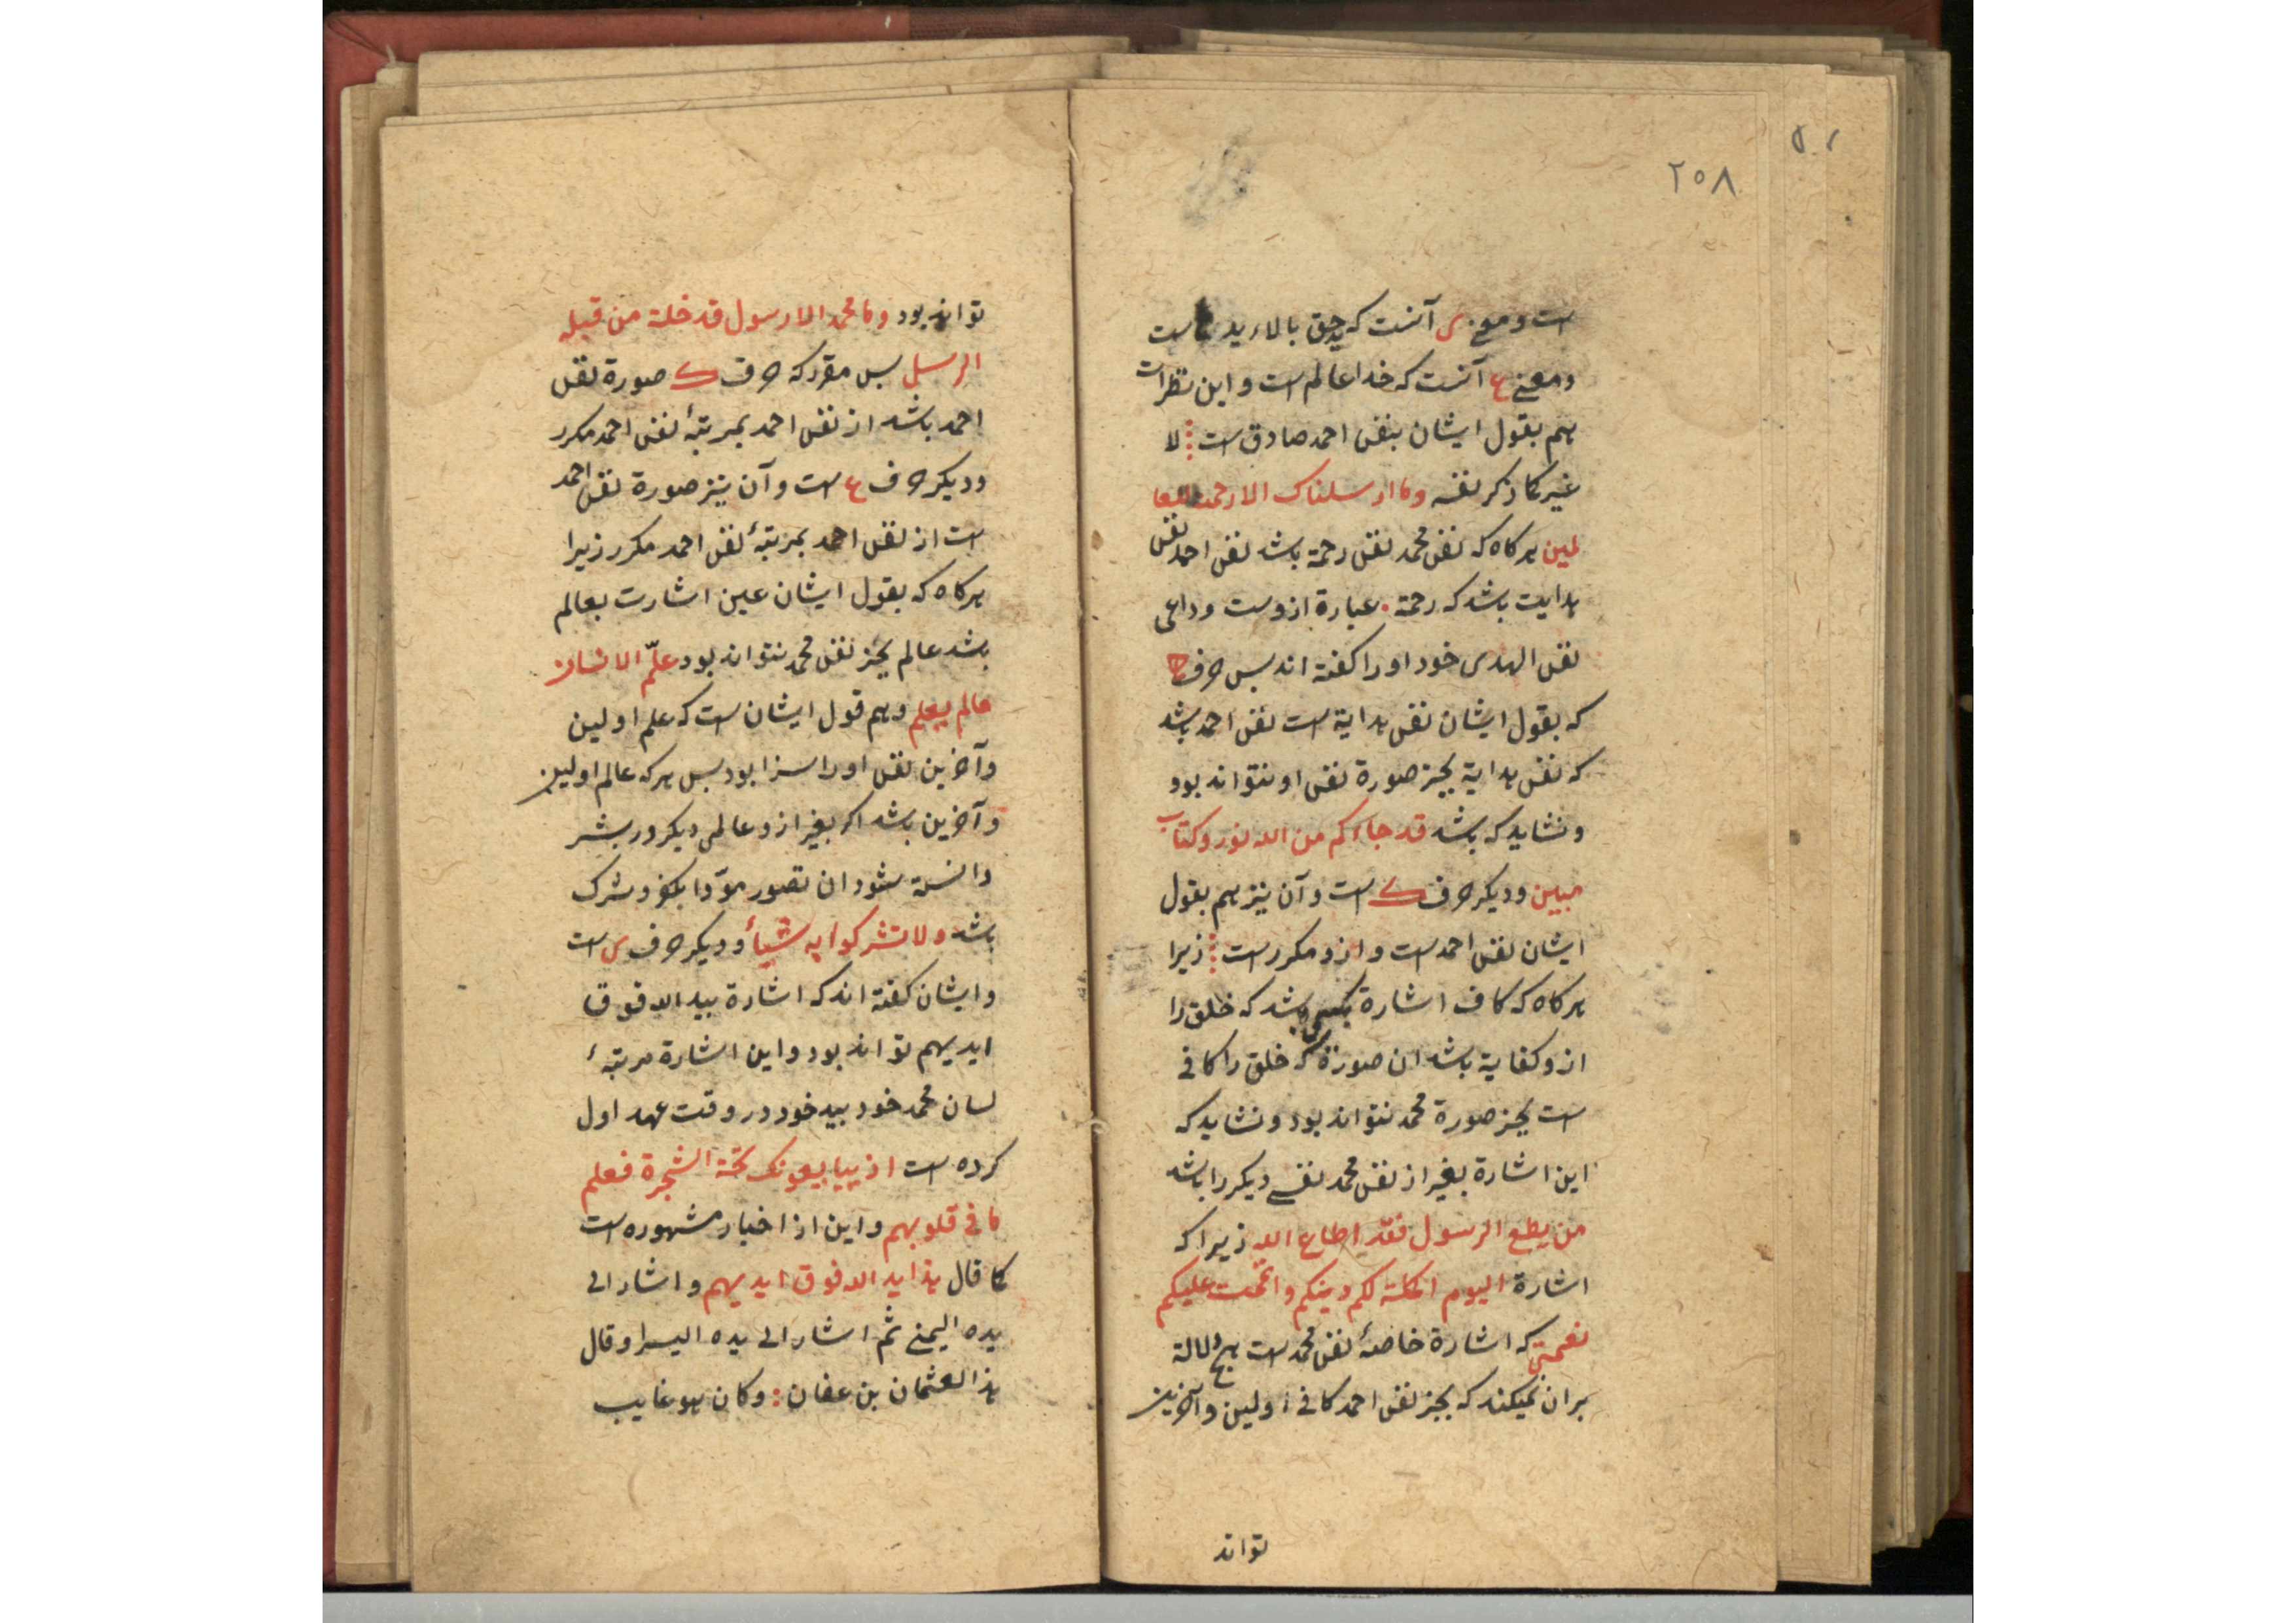 ٢٥٨
است و معنی ی آنست که ید حق بالاء ید است
و معنی ع آنست که خدا عالم است و این نظرات
هم بقول ایشان بنفس احمد صادق است لا
غیر کما ذکر نفسه وما ارسلناک الا رحمة للعا
لمین هر کاه که نفس محمد نفس رحمة باشد نفس احمد نفس
هدایت باشد که رحمة عبارة ازوست و داعی
نفس الهدی خود او را کفته اند بس حرف ه
که بقول ایشان نفس هدایة است نفس احمد باشد
که نفس هدایة بجز صورة نفس او نتواند بود
و نشاید که باشد قد جاءکم من الله نور وکتاب
مبین و دیکر حرف ک است و آن نیز هم بقول
ایشان نفس احمد است و ازو مکرر است زیرا
هر کاه که کاف اشارة بکسی باشد که خلق را
ازو کفایة باشد ان صورة که خلق را کافی
است بجز صورة محمد نتواند بود و نشاید که
این اشارة بغیر از نفس محمد نفسی دیکر را باشد
من یطع الرسول فقد اطاع الله زیرا که
اشارة الیوم اکملت لکم دینکم و اتممت علیکم
نعمتی که اشارة خاصهٔ نفس محمد است هم دلالة
بران میکند که بجز نفس احمد کافی اولین و آخرین
تواند
تواند بود وما محمد الا رسول قد خلت من قبله
الرسل بس مقرر که حرف ک صورة نفس
احمد باشد از نفس احمد بمرتبهٔ نفس احمد مکرر
و دیکر حرف ع است و آن نیز صورة نفس احمد
است از نفس احمد بمرتبهٔ نفس احمد مکرر زیرا
هر کاه که بقول ایشان عین اشارت بعالم
باشد عالم بجز نفس محمد نتواند بود علّم الانسان
مالم یعلم و هم قول ایشان است که علم اولین
و آخرین نفس او را سزا بود بس هر که عالم اولین
و آخرین باشد اکر بغیر ازو عالمی دیکر در بشر
دانسته شود ان تصور مؤدا بکفر و شرک
باشد ولا تشرکوا به شیأ و دیکر حرف ی است
و ایشان کفته اند که اشارة بید الله فوق
ایدیهم تواند بود و این اشارة مرتبهٔ
لسان محمد خود بید خود در وقت عهد اول
کرده است اذ یبایعونک تحت الشجرة فعلم
ما فی قلوبهم و این از اخبار مشهوره است
کما قال هذا ید الله فوق ایدیهم و اشار الی
یده الیمنی ثم اشار الی یده الیسرا و قال
هذا لعثمان بن عفان : و کان هو غایب